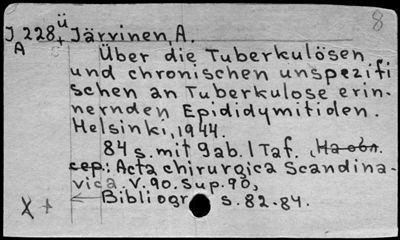 ü 8
J 228+ Järvinen, A.
A Über die Tuberkulösen
und chronischen unspezifi
schen an Tuberkulose erin-
nernden Epididymitiden.
Helsinki, 1944.
84 s. mit 9 ab. 1 Taf. На обл.
сер.: Acta chirurgica Scandina-
vica. V. 90. Sup. 90,
X + Bibliogr s. 82-84.